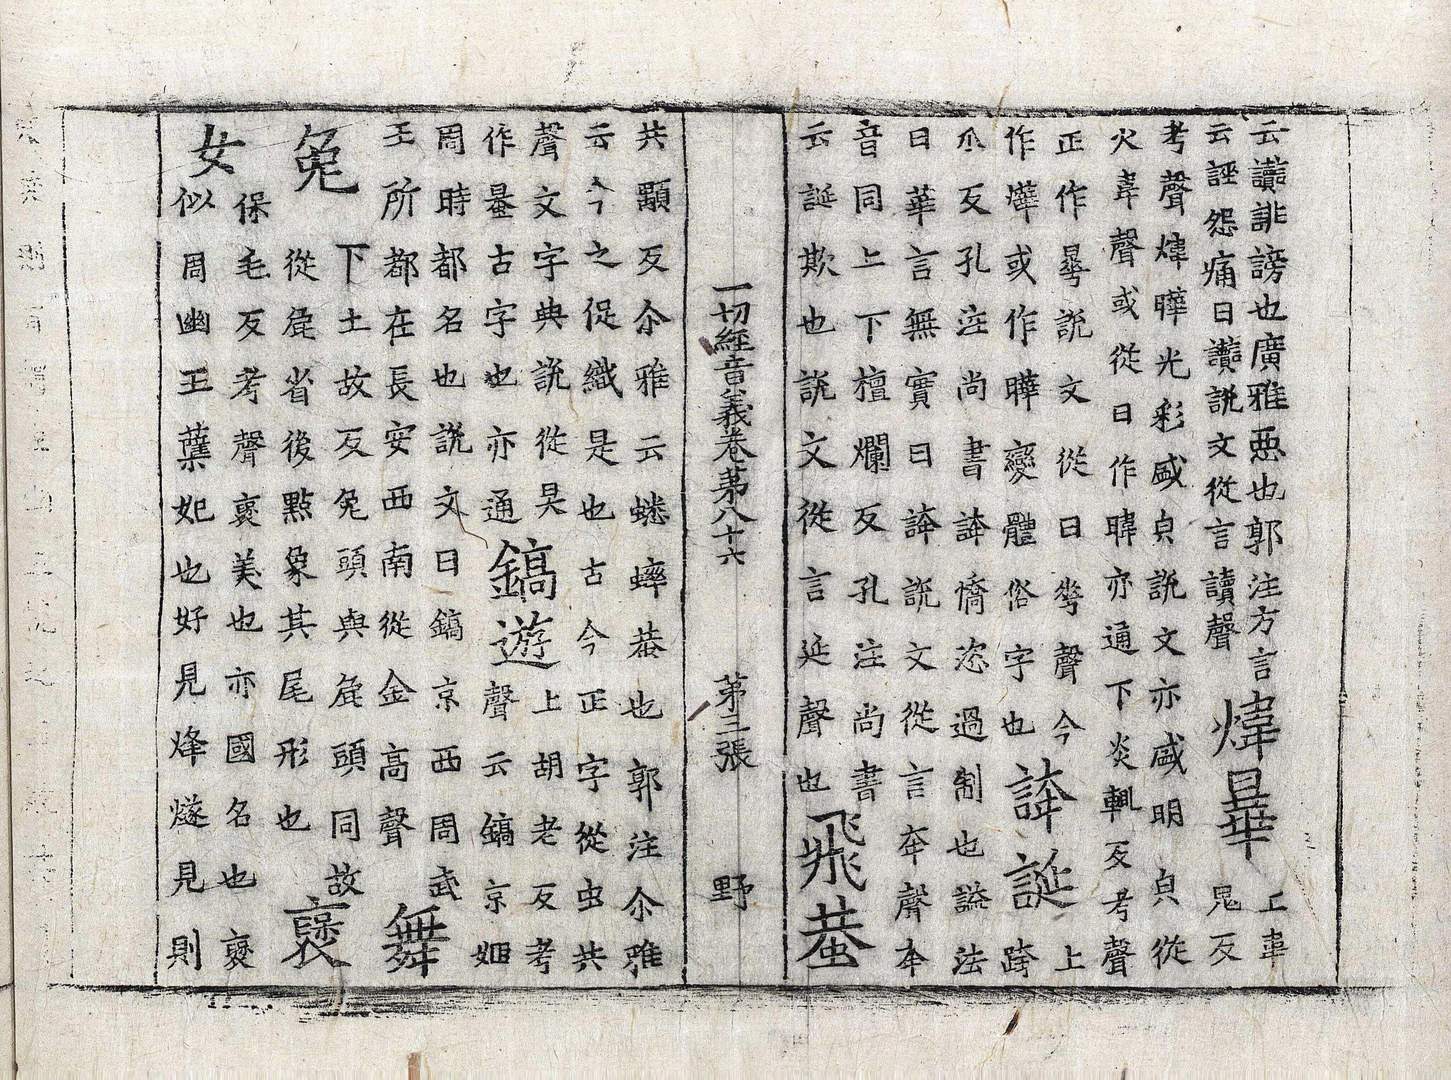 云讟誹謗也廣雅惡也郭注方言
云誣怨痛曰讟說文從言讀聲
煒曅
上韋
鬼反
考聲煒曄光彩盛皃說文亦盛明皃從
火韋聲或從日作暐亦通下炎輒反考聲
正作曅說文從日𠌶聲今
作爗或作曄變體俗字也
誇誕
上
跨
爪反孔注尚書誇憍恣過制也謚法
曰華言無實曰誇說文從言夲聲夲
音同上下檀爛反孔注尚書
云誕欺也說文從言延聲也
飛蛬
一切經音義卷苐八十六 第三張 野
共顒反尒雅云蟋蟀蛬也郭注尒雅
云今之促織是也古今正字從虫共
聲文字典說從
作蛬古字也亦通
鎬遊
上胡老反考
聲云鎬京姬
周時都名也說文曰鎬京西周武
王所都在長安西南從金高聲
舞
兔
下土故反兔頭與㲋頭同故
從㲋省後點象其尾形也
裦
女
保毛反考聲裦美也亦國名也裦
似周幽王櫱妃也好見烽燧見則